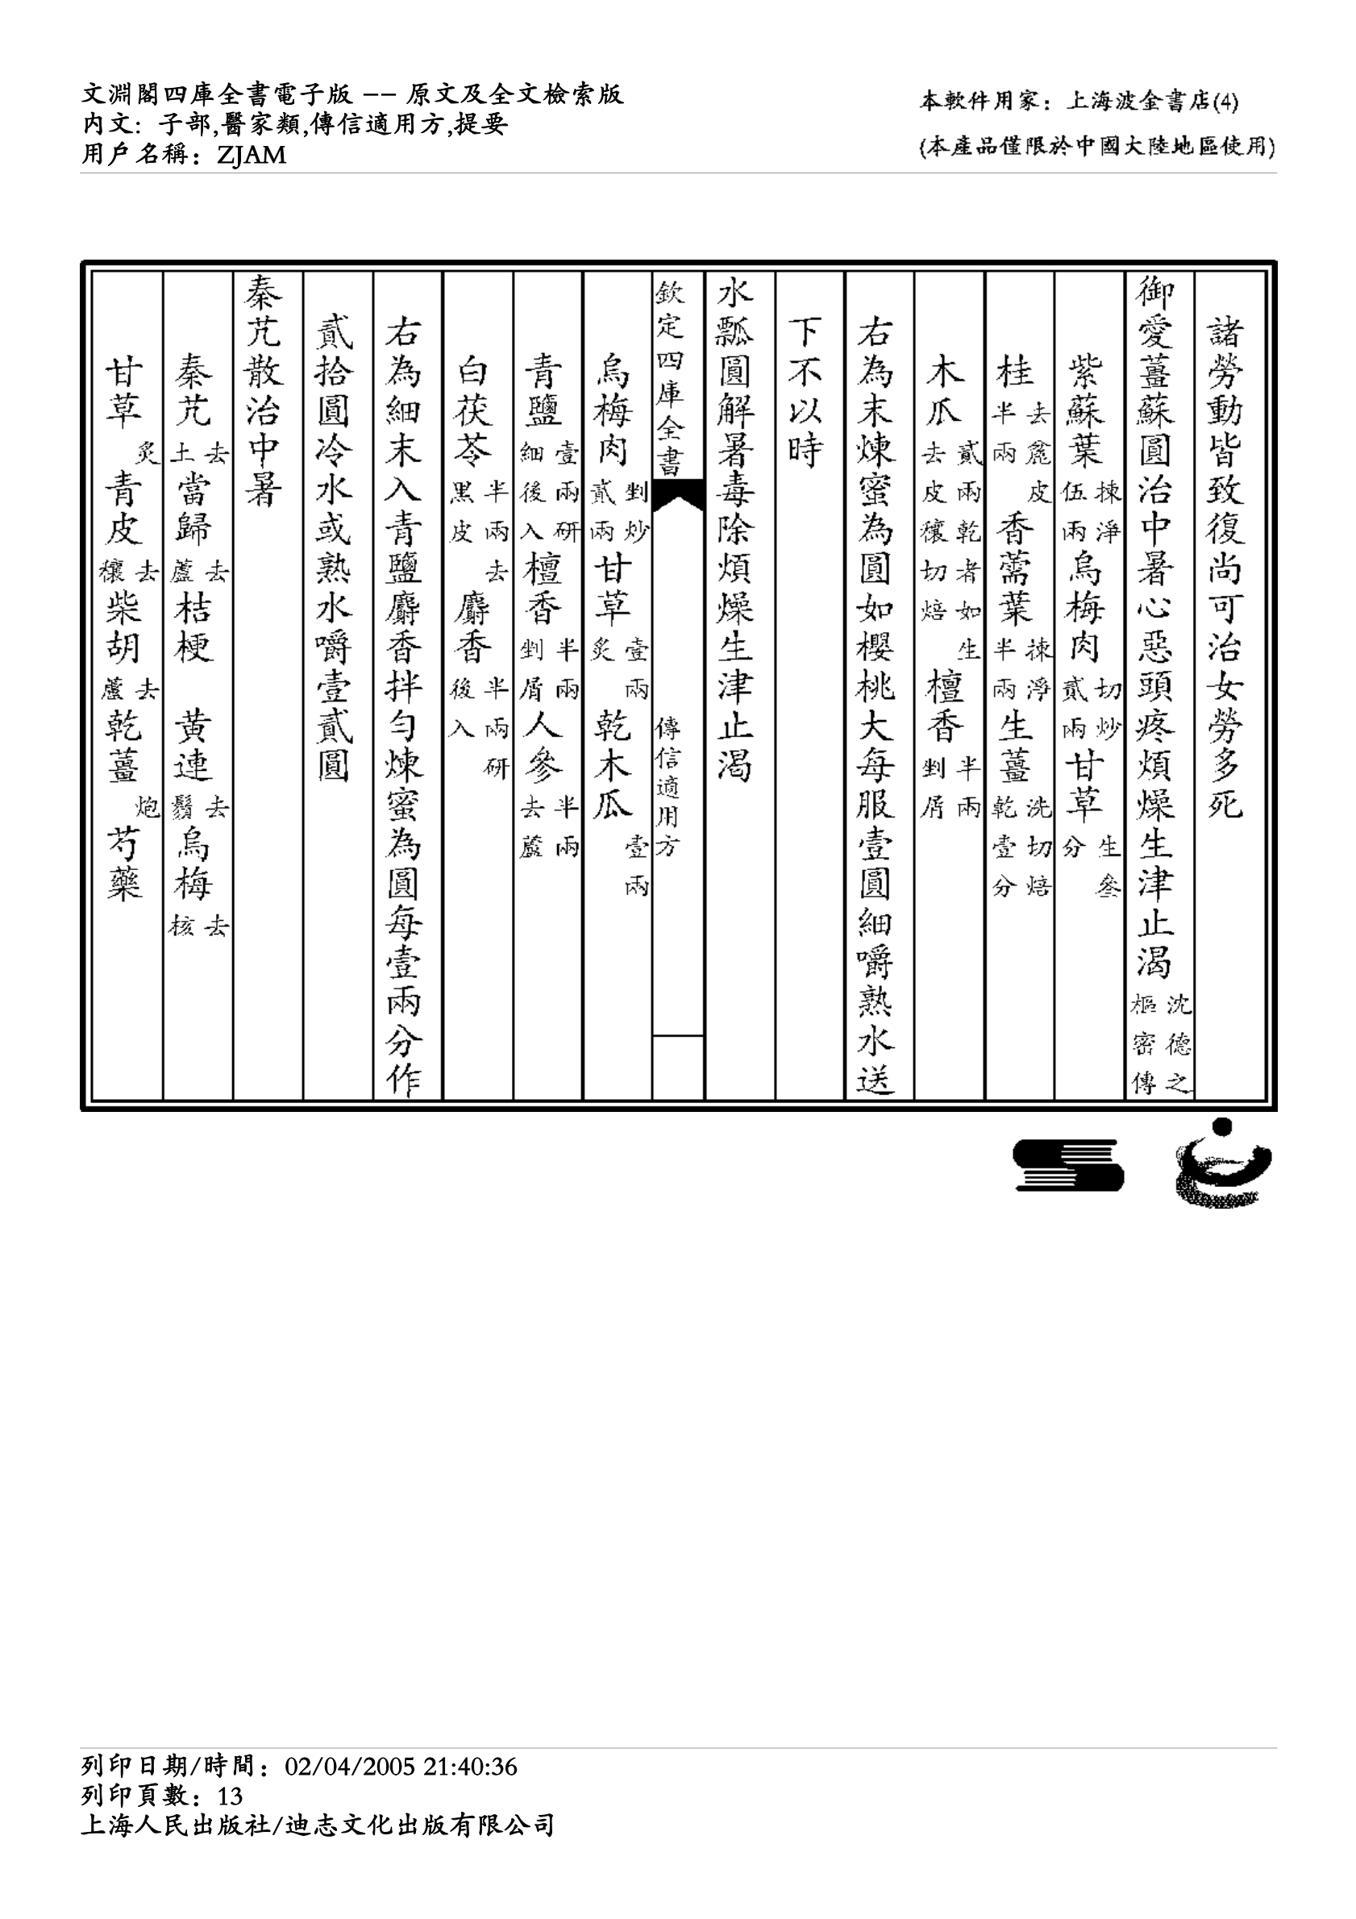 文淵閣四庫全書電子版 -- 原文及全文檢索版
內文: 子部,醫家類,傳信適用方,提要
用戶名稱: ZJAM
本軟件用家: 上海波金書店(4)
(本產品僅限於中國大陸地區使用)
諸勞動皆致復尚可治女勞多死
御愛薑蘇圓治中暑心惡頭疼煩燥生津止渴沈德之樞密傳
紫蘇葉揀淨伍兩烏梅肉切炒貳兩甘草生叄分
桂去麄皮半兩香薷葉揀淨半兩生薑洗切焙乾壹分
木瓜貳兩乾者如生去皮穰切焙檀香半兩剉屑
右為末煉蜜為圓如櫻桃大每服壹圓細嚼熟水送
下不以時
水瓢圓解暑毒除煩燥生津止渴
欽定四庫全書
傳信適用方
烏梅肉剉炒貳兩甘草壹兩炙乾木瓜壹兩
青鹽壹兩研細後入檀香半兩剉屑人參半兩去蘆
白茯苓半兩去黑皮麝香半兩研後入
右為細末入青鹽麝香拌勻煉蜜為圓每壹兩分作
貳拾圓冷水或熟水嚼壹貳圓
秦艽散治中暑
秦艽去土當歸去蘆桔梗 黃連去鬚烏梅去核
甘草炙青皮去穰柴胡去蘆乾薑炮芍藥
列印日期/時間: 02/04/2005 21:40:36
列印頁數: 13
上海人民出版社/迪志文化出版有限公司